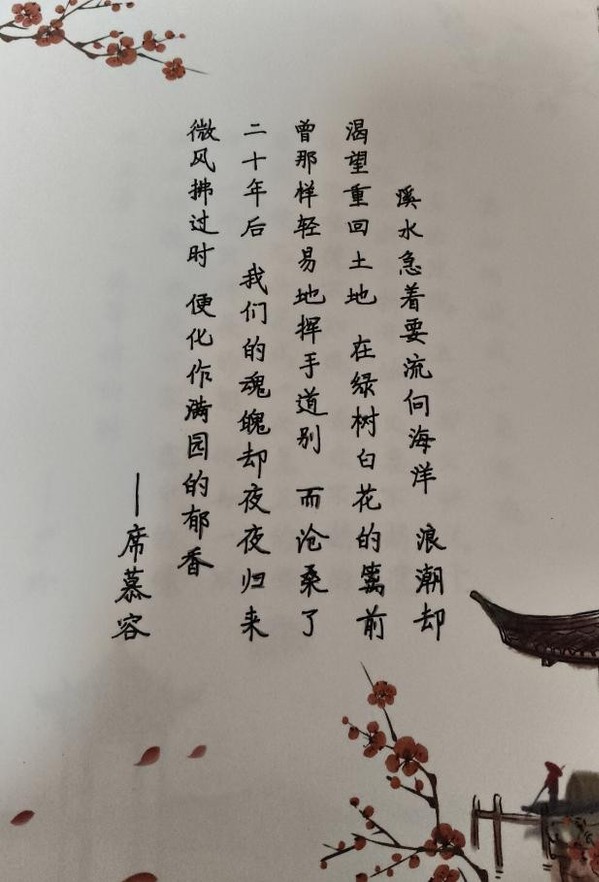 溪水急着要流向海洋 浪潮却
渴望重回土地 在绿树白花的篱前
曾那样轻易地挥手道别 而沧桑了
二十年后 我们的魂魄却夜夜归来
微风拂过时 便化作满园的郁香
—席慕容